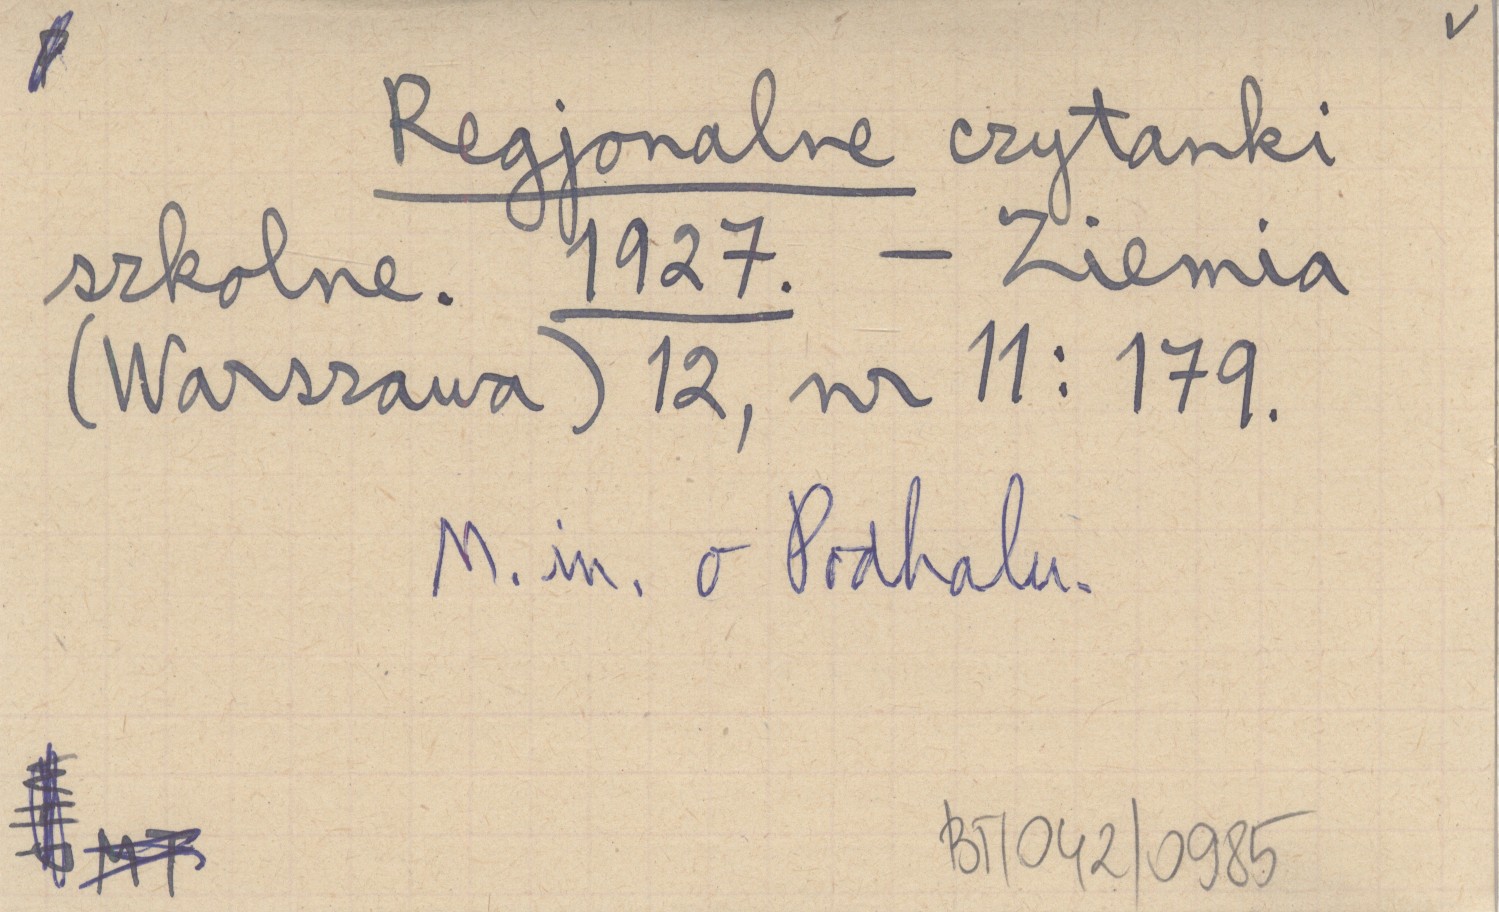 Regjonalne czytanki
szkolne. 1927. – Ziemia
(Warszawa) 12, nr 11: 179.
M. in. o Podhalu.
BT/042/0985